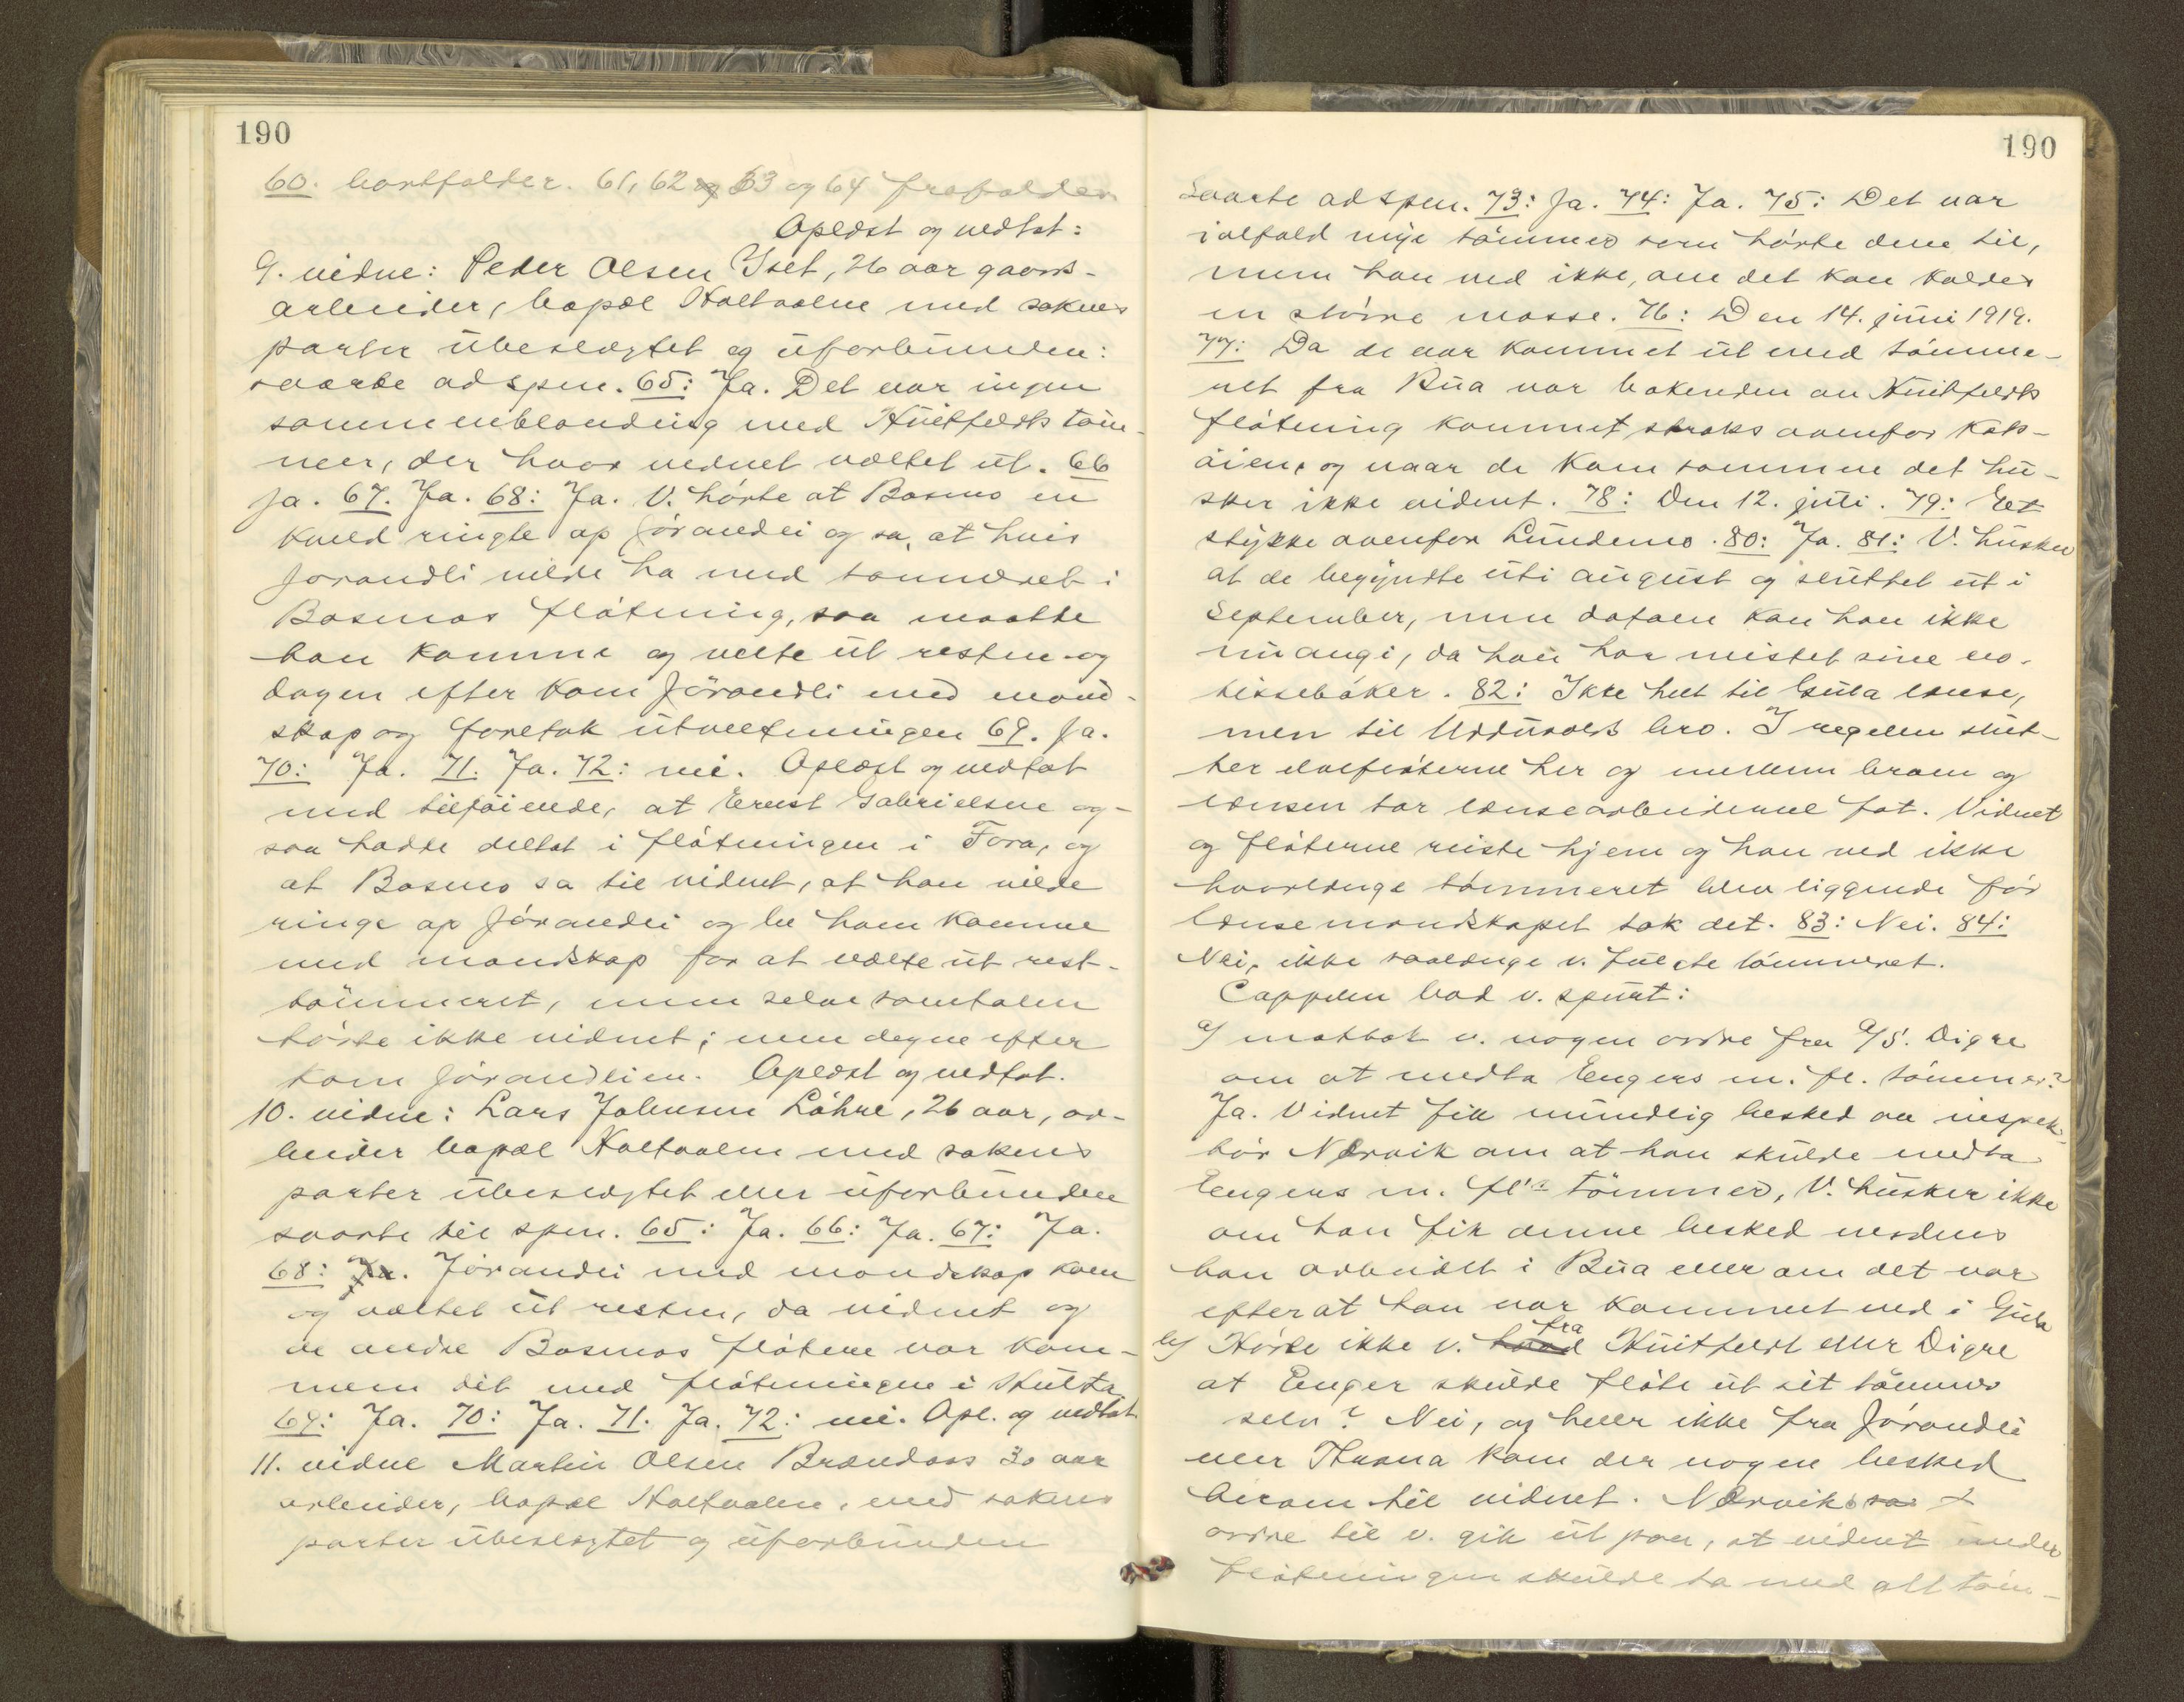 190
60. bortfalder. 61, 62 og 63 og 64 frafaldes
Oplæst og vedtat:
9. vidne: Peder Olsen Yset, 26 aar gaards-
arbeider, bopæl Holtaalen med sakens
parter ubeslegtet og uforbunden:
svarte ad spm. 65: Ja. Det var ingen
sammenblanding med Huitfeldts tøm-
mer, der hvor vidnet væltet ut. 66
Ja. 67. Ja. 68: Ja. V. hørte at Bosmo en
kveld ringte op Jørandli og sa, at hvis
Jørandli vilde ha med tømmeret i
Bosmos fløtning, saa maatte
han komme og velte ut resten og
dagen efter kom Jørandli med mand-
skap og foretok utveltningen 69. Ja.
70: Ja. 71. Ja. 72: nei. Oplæst og vedtat
med tilføiende, at Ernst Gabrielsen og-
saa hadde deltat i fløtningen i Fora, og
at Bosmo sa til vidnet, at han vilde
ringe op Jørandli og be ham komme
med mandskap for at vælte ut rest-
tømmeret, men selve samtalen
hørte ikke vidnet; men dagen efter
kom Jørandlien. Oplæst og vedtat.
10. vidne: Lars Johnsen Løhre, 26 aar, ar-
beider bopæl Holtaalen med sakens
parter ubeslegtet eller uforbunden
svarte til spm. 65: Ja. 66: Ja. 67: Ja.
68: Ja. Jørandli med mandskap kom
og væltet ut resten, da vidnet og
de andre Bosmos fløtere var kom-
men dit med fløtningen i Hulta
69: Ja. 70: Ja. 71. Ja. 72: nei. Opl. og vedtat
11. vidne Martin Olsen Brændaas 30 aar
arbeider, bopæl Holtaalen, med sakens
parter ubeslegtet og uforbunden
190
svarte ad spm. 73: Ja. 74: Ja. 75: Det var
ialfald mye tømmer som hørte dem til,
men han ved ikke, om det kan kaldes
en større masse. 76: Den 14. juni 1919.
77: Da de var kommet ut med tømme-
ret fra Bua var bakenden av Huitfeldts
fløtning kommet straks ovenfor Kots-
øien, og naar de kom sammen det hu-
sker ikke vidnet. 78: Den 12. juli. 79: Et
stykke ovenfor Lundemo. 80: Ja. 81: V. husker
at de begyndte uti august og sluttet ut i
september, men datoen kan han ikke
nu angi, da han har mistet sine no-
tissebøker. 82: Ikke helt til Gula lense,
men til Udduvolds bro. I regelen slut-
ter elvefløterne her og mellem broen og
lensen tar lensearbeiderne fat. Vidnet
og fløterne reiste hjem og han ved ikke
hvorlænge tømmeret blev liggende før
lensemandskapet tok det. 83: Nei. 84:
Nei, ikke saalænge v. fulgte tømmeret.
Cappelen bad v. spurt:
a/ mottok v. nogen ordre fra A/S. Digre
om at medta Engers m. fl. tømmer?
Ja. Vidnet fik mundlig besked av inspek-
tør Nervik om at han skulde medta
Engers m. fl's tømmer, V. husker ikke
om han fik denne besked medens
han arbeidet i Bua eller om det var
efterat han var kommet ned i Gula
b/ Hørte ikke v. hvad fra Huitfeldt eller Digre
at Enger skulde fløte ut sit tømmer
selv? Nei, og heller ikke fra Jørandli
eller Hvana kom der nogen besked
herom til vidnet. Nerviks sa
ordre til v. gik ut paa, at vidnet under
fløtningen skulde ta med alt tøm-